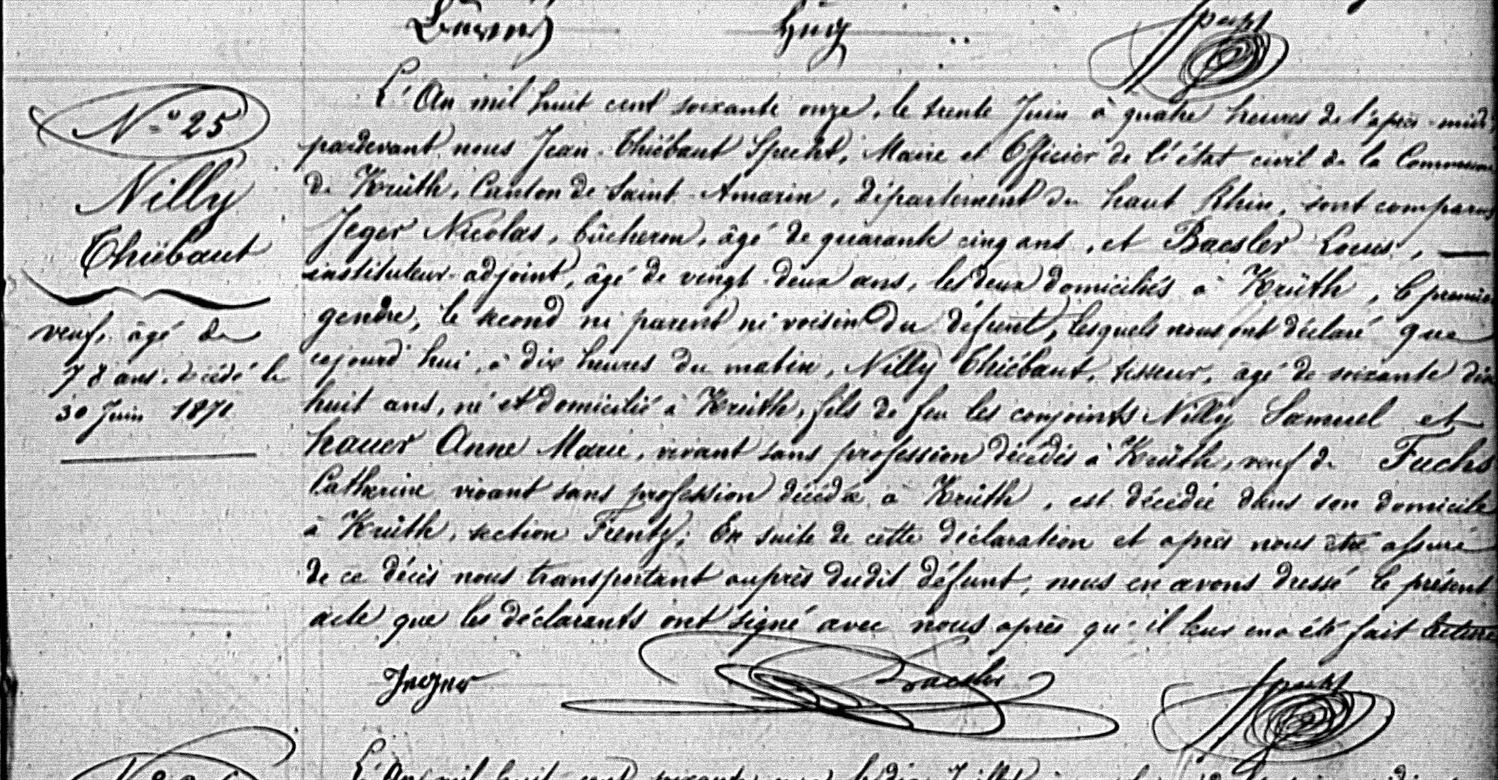 Hug
Specht
N° 25
Nilly
Thiébaut
veuf, âgé de
78 ans, décédé le
30 Juin 1871
L'An mil huit cent soixante onze, le trente Juin à quatre heures de l'après-midi
pardevant nous Jean-Thiébaut Specht, Maire et Officier de l'état civil de la Commune
de Krüth, Canton de Saint-Amarin, département du haut Rhin, sont comparus
Jeger Nicolas, bûcheron, âgé de quarante cinq ans, et Baesler Louis, —
instituteur-adjoint, âgé de vingt-deux ans, les deux domiciliés à Krüth, le premier
gendre, le second ni parent ni voisin du défunt, lesquels nous ont déclaré que
cejourd'hui, à dix heures du matin, Nilly Thiébaut, tisseur, âgé de soixante dix
huit ans, né et domicilié à Krüth, fils de feu les conjoints Nilly Samuel et
hauer Anne Marie, vivant sans profession décédés à Krüth, veuf de Fuchs
Catherine vivant sans profession décédée à Krüth, est décédée dans son domicile
à Krüth, section Frentz; En suite de cette déclaration et après nous être assuré
de ce décès nous transportant auprès dudit défunt, nous en avons dressé le présent
acte que les déclarants ont signé avec nous après qu'il leur en a été fait lecture
Jeger
Baesler
Specht
L'An mil huit cent soixante onze, le dix Juillet